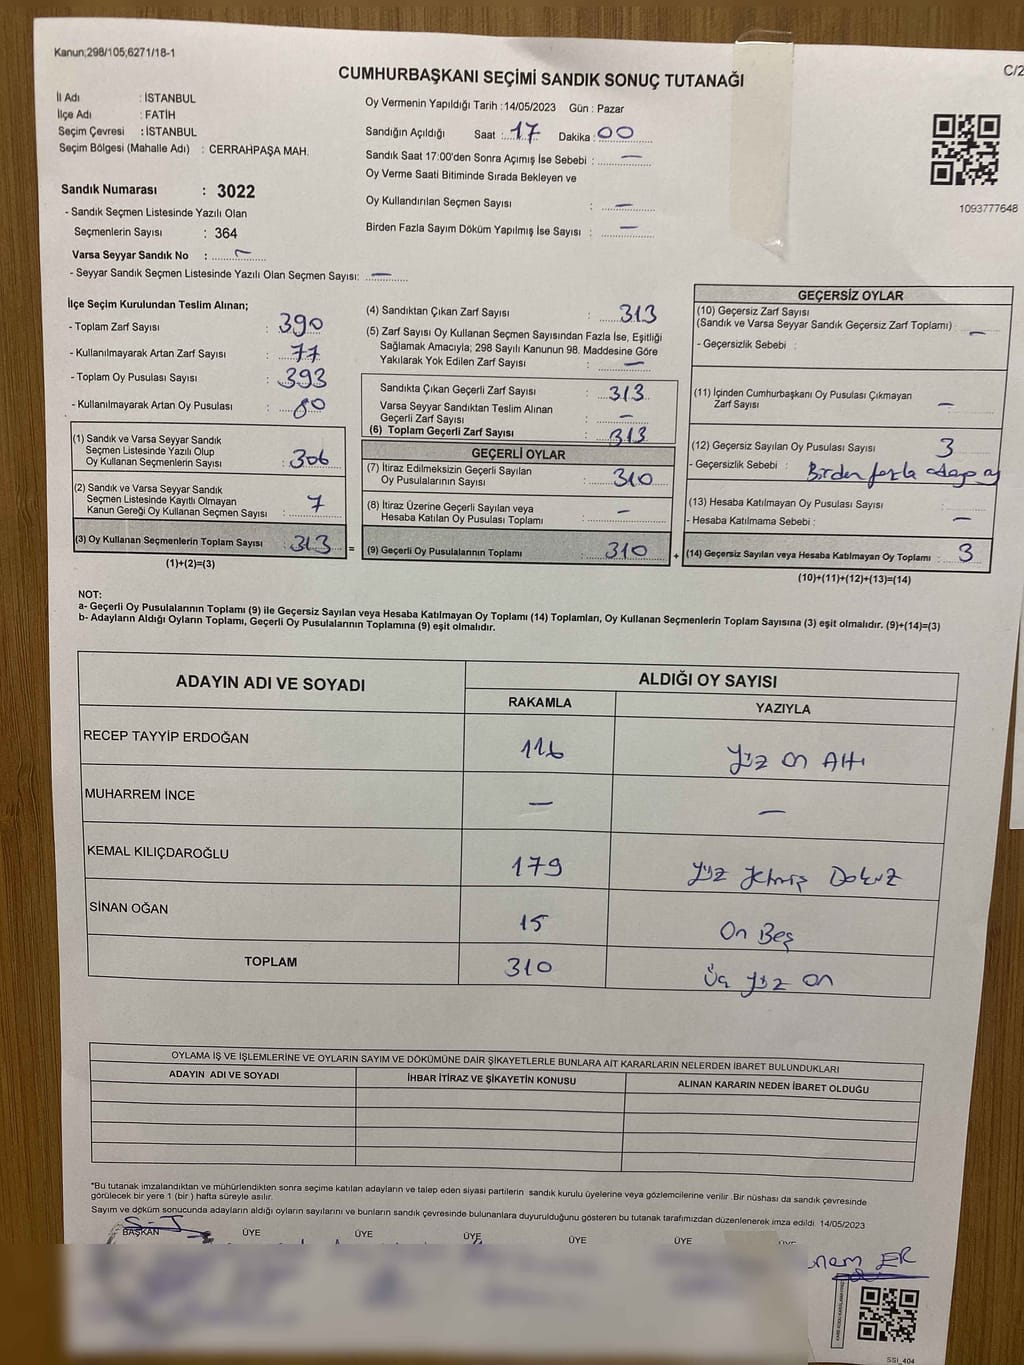 Kanun;298/105;6271/18-1
C/2
CUMHURBAŞKANI SEÇİMİ SANDIK SONUÇ TUTANAĞI
İl Adı : İSTANBUL
İlçe Adı : FATİH
Seçim Çevresi : İSTANBUL
Seçim Bölgesi (Mahalle Adı) : CERRAHPAŞA MAH.
Sandık Numarası : 3022
- Sandık Seçmen Listesinde Yazılı Olan
Seçmenlerin Sayısı : 364
Varsa Seyyar Sandık No : –
- Seyyar Sandık Seçmen Listesinde Yazılı Olan Seçmen Sayısı: —
Oy Vermenin Yapıldığı Tarih : 14/05/2023 Gün : Pazar
Sandığın Açıldığı Saat : 17 Dakika : 00
Sandık Saat 17:00'den Sonra Açımış İse Sebebi : —
Oy Verme Saati Bitiminde Sırada Bekleyen ve
Oy Kullandırılan Seçmen Sayısı : —
Birden Fazla Sayım Döküm Yapılmış İse Sayısı : —
1093777648
İlçe Seçim Kurulundan Teslim Alınan;
- Toplam Zarf Sayısı : 390
- Kullanılmayarak Artan Zarf Sayısı : 77
- Toplam Oy Pusulası Sayısı : 393
- Kullanılmayarak Artan Oy Pusulası : 80
(1) Sandık ve Varsa Seyyar Sandık
Seçmen Listesinde Yazılı Olup
Oy Kullanan Seçmenlerin Sayısı : 306
(2) Sandık ve Varsa Seyyar Sandık
Seçmen Listesinde Kayıtlı Olmayan
Kanun Gereği Oy Kullanan Seçmen Sayısı : 7
(3) Oy Kullanan Seçmenlerin Toplam Sayısı : 313 =
(1)+(2)=(3)
(4) Sandıktan Çıkan Zarf Sayısı : 313
(5) Zarf Sayısı Oy Kullanan Seçmen Sayısından Fazla İse, Eşitliği
Sağlamak Amacıyla; 298 Sayılı Kanunun 98. Maddesine Göre
Yakılarak Yok Edilen Zarf Sayısı : —
Sandıkta Çıkan Geçerli Zarf Sayısı : 313
Varsa Seyyar Sandıktan Teslim Alınan
Geçerli Zarf Sayısı : —
(6) Toplam Geçerli Zarf Sayısı : 313
GEÇERLİ OYLAR
(7) İtiraz Edilmeksizin Geçerli Sayılan
Oy Pusulalarının Sayısı : 310
(8) İtiraz Üzerine Geçerli Sayılan veya
Hesaba Katılan Oy Pusulası Toplamı : —
(9) Geçerli Oy Pusulalarının Toplamı : 310 +
GEÇERSİZ OYLAR
(10) Geçersiz Zarf Sayısı
(Sandık ve Varsa Seyyar Sandık Geçersiz Zarf Toplamı) : —
- Geçersizlik Sebebi :
(11) İçinden Cumhurbaşkanı Oy Pusulası Çıkmayan
Zarf Sayısı : —
(12) Geçersiz Sayılan Oy Pusulası Sayısı : 3
- Geçersizlik Sebebi : Birden fazla
(13) Hesaba Katılmayan Oy Pusulası Sayısı : —
- Hesaba Katılmama Sebebi :
(14) Geçersiz Sayılan veya Hesaba Katılmayan Oy Toplamı : 3
(10)+(11)+(12)+(13)=(14)
NOT:
a- Geçerli Oy Pusulalarının Toplamı (9) ile Geçersiz Sayılan veya Hesaba Katılmayan Oy Toplamı (14) Toplamları, Oy Kullanan Seçmenlerin Toplam Sayısına (3) eşit olmalıdır. (9)+(14)=(3)
b- Adayların Aldığı Oyların Toplamı, Geçerli Oy Pusulalarının Toplamına (9) eşit olmalıdır.
ADAYIN ADI VE SOYADI ALDIĞI OY SAYISI
RAKAMLA YAZIYLA
RECEP TAYYİP ERDOĞAN 116 Yüz on Altı
MUHARREM İNCE — —
KEMAL KILIÇDAROĞLU 179 Yüz Yetmiş Dokuz
SİNAN OĞAN 15 On Beş
TOPLAM 310 Üç Yüz on
OYLAMA İŞ VE İŞLEMLERİNE VE OYLARIN SAYIM VE DÖKÜMÜNE DAİR ŞİKAYETLERLE BUNLARA AİT KARARLARIN NELERDEN İBARET BULUNDUKLARI
ADAYIN ADI VE SOYADI İHBAR İTİRAZ VE ŞİKAYETİN KONUSU ALINAN KARARIN NEDEN İBARET OLDUĞU
*Bu tutanak imzalandıktan ve mühürlendikten sonra seçime katılan adayların ve talep eden siyasi partilerin sandık kurulu üyelerine veya gözlemcilerine verilir .Bir nüshası da sandık çevresinde
görülecek bir yere 1 (bir ) hafta süreyle asılır.
Sayım ve döküm sonucunda adayların aldığı oyların sayılarını ve bunların sandık çevresinde bulunanlara duyurulduğunu gösteren bu tutanak tarafımızdan düzenlenerek imza edildi. 14/05/2023
BAŞKAN ÜYE ÜYE ÜYE ÜYE ÜYE ÜYE
ER
SSI_404